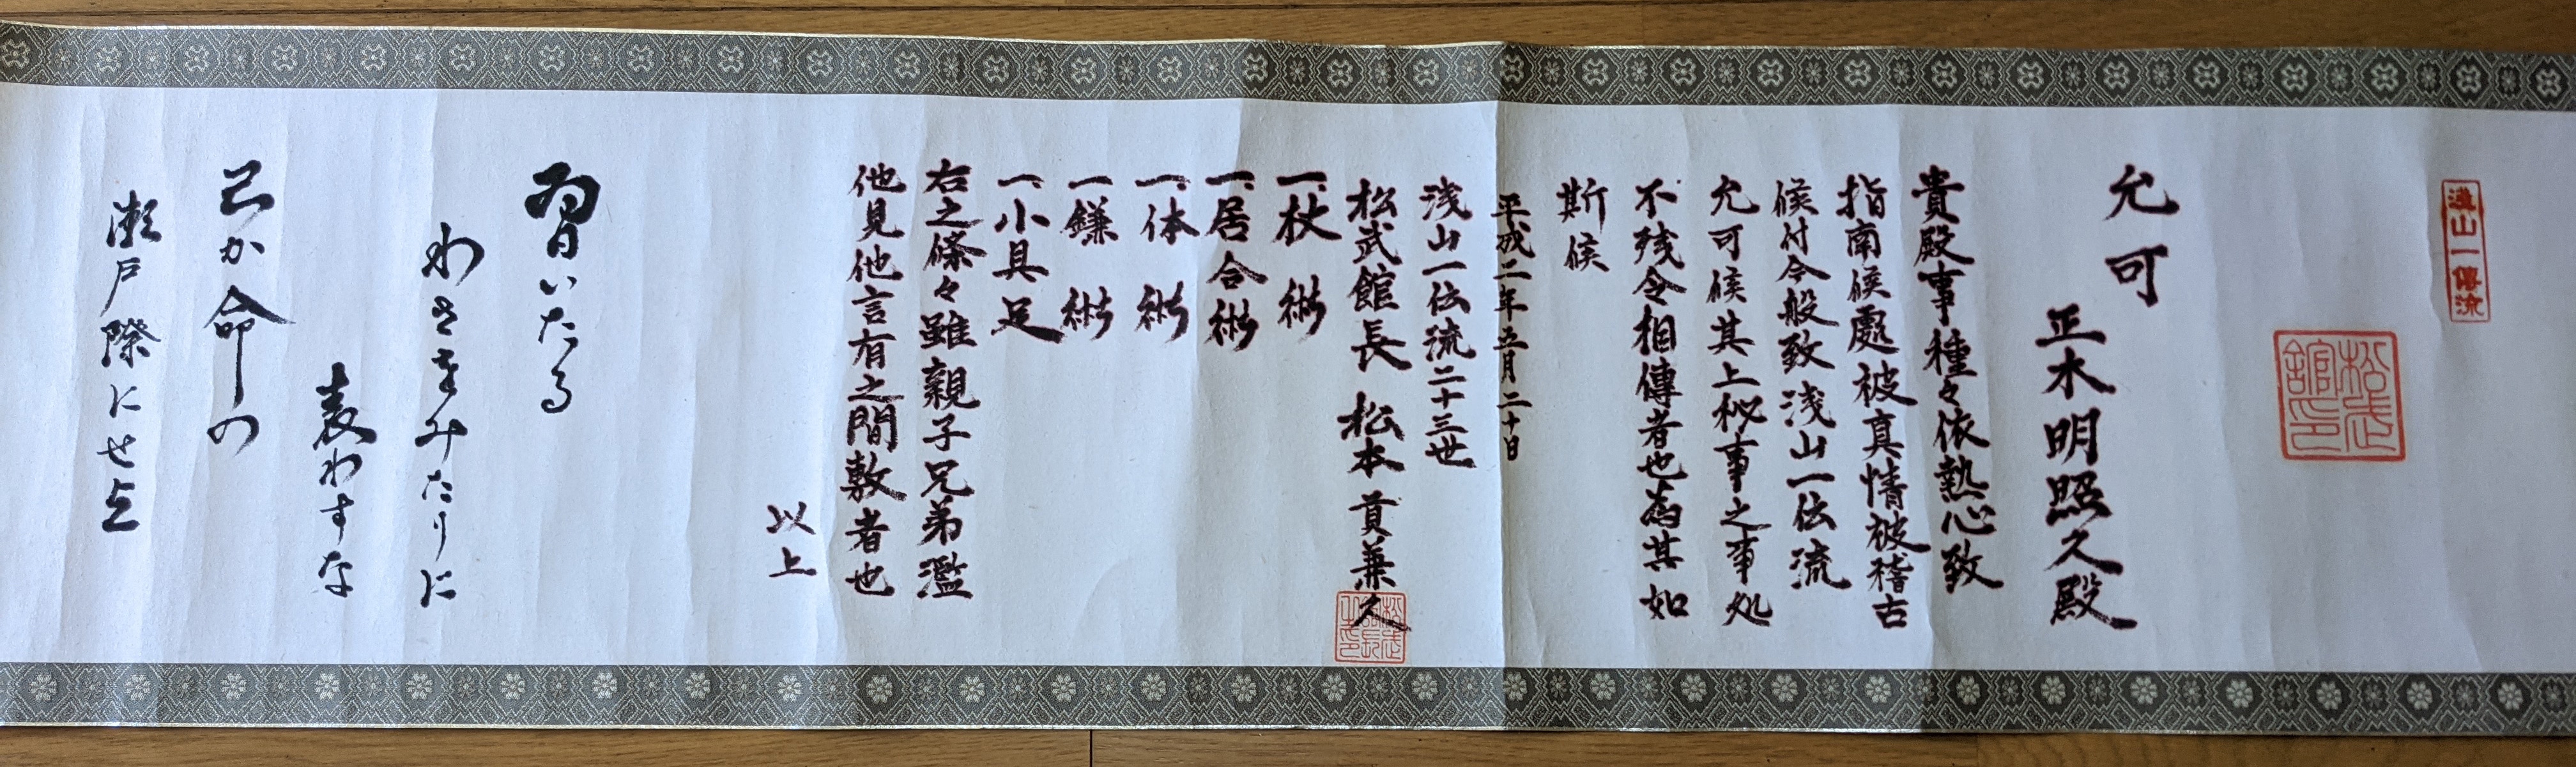 淺山一傳流
松武館印
允可
正木明照久殿
貴殿事種々依熱心致
指南候處被真情被稽古
候付今般致浅山一伝流
允可候其上秘事之事処
不残令相傳者也為其如
斯候
平成二年五月二十日
浅山一伝流二十三世
松武館長 松本貢兼久
松武館長之印
一、杖術
一、居合術
一、体術
一、鎌術
一、小具足
右之條々雖親子兄弟濫
他見他言有之間敷者也
以上
習いたる
わさをみたりに
表わすな
己か命の
瀬戸際にせよ